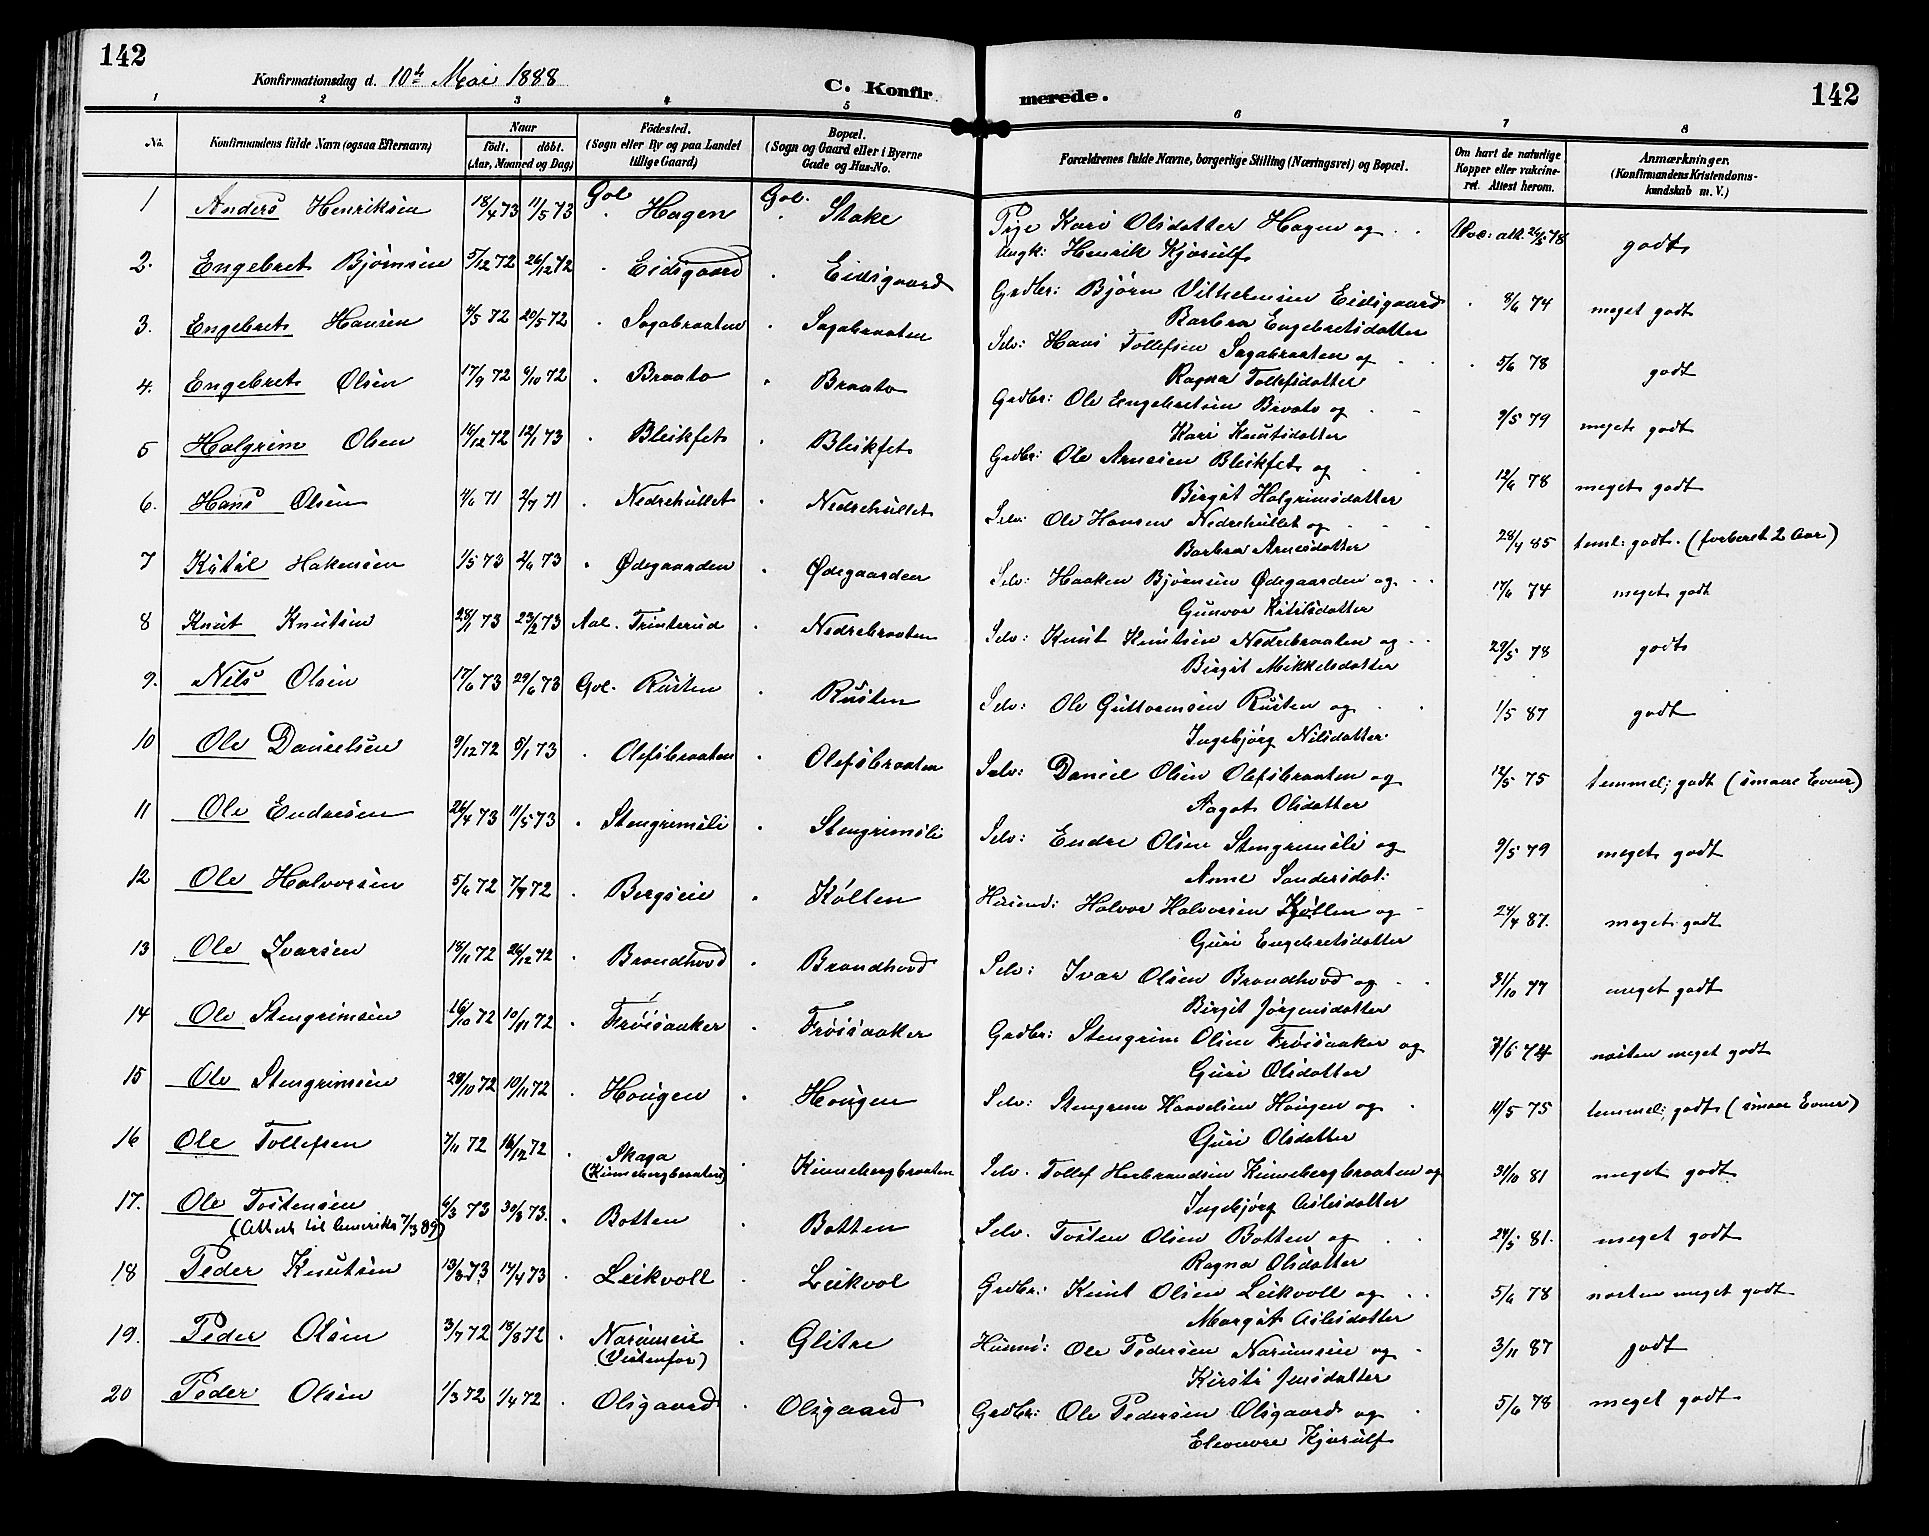 142
Konfirmationsdag d. 10de Mai 1888
C. Konfirmerede.
142
1 2 3 4 5 6 7 8
No. Konfirmandens fulde Navn (ogsaa Efternavn) Naar født. døbt. (Aar, Maaned og Dag) Fødested. (Sogn eller By og paa Landet tillige Gaard) Bopæl. (Sogn og Gaard eller i Byerne Gade og Hus-No. Forældrenes fulde Navne, borgerlige Stilling (Næringsvei) og Bopæl. Om havt de naturlige Kopper eller vakcineret. Attest herom. Anmærkninger. (Konfirmandens Kristendomskundskab m. V.)
1 Anders Henriksen 18/4 73 11/5 73 Gol Hagen Gol. Stake Pige Kari Olsdatter Hagen og Vac: att. 26/5 78 godt
Ungk: Henrik Kjerulf
2. Engebret Bjørnsen 5/12 72 26/12 72 " Eidsgaard " Eidsgaard Grdbr: Bjørn Vilhelmsen Eidsgaard " 8/6 74 meget godt
Barbra Engebretsdatter
3. Engebret Hansen 4/5 72 20/5 72 " Sagabraaten " Sagabraaten Selv: Hans Tollefsen Sagabraaten og " 5/6 78 godt
Ragna Tollefsdatter
4. Engebret Olsen 17/9 72 6/10 72 " Braato " Braato Grdbr: Ole Engebretsen Braato og 9/5 79 meget godt
Kari Knutsdatter
5 Halgrim Olsen 16/12 72 12/1 73 " Bleikfet " Bleikfet Grdbr: Ole Arnesen Bleikfet og 12/6 78 meget godt
Birgit Halgrimsdatter
6. Hans Olsen 4/6 71 2/7 71 " Nedrehullet " Nedrehullet Selv: Ole Hansen Nedrehullet og 28/4 85 teml: godt. (forberet 2 Aar)
Barbra Arnesdatter
7 Kitil Hakensen 1/5 73 2/6 73 " Ødegaarden " Ødegaarden Selv: Haaken Bjørnsen Ødegaarden og 17/6 74 meget godt
Gunvor Kitilsdatter
8 Knut Knutsen 28/1 73 23/2 73 Aal. Trinterud " Nedrebraaten Selv: Knut Knutsen Nedrebraaten og 29/5 78 godt
Birgit Mikkelsdatter
9. Nils Olsen 17/6 73 29/6 73 Gol. Rusten " Rusten Selv: Ole Guttormsen Rusten og 1/5 87 godt
Ingebjørg Nilsdatter
10 Ole Danielsen 9/12 72 5/1 73 " Olefsbraaten " Olefsbraaten Selv: Daniel Olsen Olefsbraaten og 12/5 75 temmel; godt (smaae Evner)
Aagot Olsdatter
11 Ole Endresen 26/4 73 11/5 73 " Stengrimsli " Stengrimsli Selv: Endre Olsen Stengrimsli og 9/5 79 meget godt
Anne Sandersdat:
12 Ole Halvorsen 5/6 72 7/7 72 " Bergseie " Kølten Husmd: Halvor Halvorsen Kølten og 24/4 87. meget godt
Guri Engebretsdatter
13 Ole Ivarsen 18/11 72 26/12 72 " Brandhovd " Brandhovd Selv: Ivar Olsen Brandhovd og 31/10 77 meget godt
Birgit Jørgensdatter
14 Ole Stengrimsen 16/10 72 10/11 72 " Frøisaaker " Frøisaaker Grdbr: Stengrim Olsen Frøisaaker og 7/6 74 næsten meget godt
Guri Olsdatter
15 Ole Stengrimsen 28/10 72 10/11 72 " Hougen " Hougen Selv: Stengrim Haavelsen Hougen og 11/5 75 temmel; godt (smaae Evner)
Guri Olsdatter
16 Ole Tollefsen 7/11 72 16/12 72 " Skaga (Kinnebergbraaten) " Kinnebergbraaten Selv. Tollef Herbrandsen Kinnebergbraaten og 31/10 81 meget godt
Ingebjørg Aslesdatter
17. Ole Tostensen 6/3 73 30/3 73. " Botten " Botten Selv. Tosten Olsen Botten og 24/5 81. meget godt
(Attest til Amerika 7/3 89) Ragna Olsdatter
18 Peder Knutsen 13/3 73 14/4 73 " Leikvoll " Leikvol Grdbr: Knut Olsen Leikvoll og 5/6 78 næsten meget godt
Margit Aslesdatter
19. Peder Olsen 3/7 72 18/8 72 " Narumseie (Vestenfor) " Glitre Husmd: Ole Pedersen Narumseie og 3/11 87 godt
Kirsti Jensdatter
20 Peder Olsen 1/3 72 1/4 72 " Olsgaard " Olsgaard Grdbr: Ole Pedersen Olsgaard og 5/6 78 meget godt
Eleonore Kjerulf